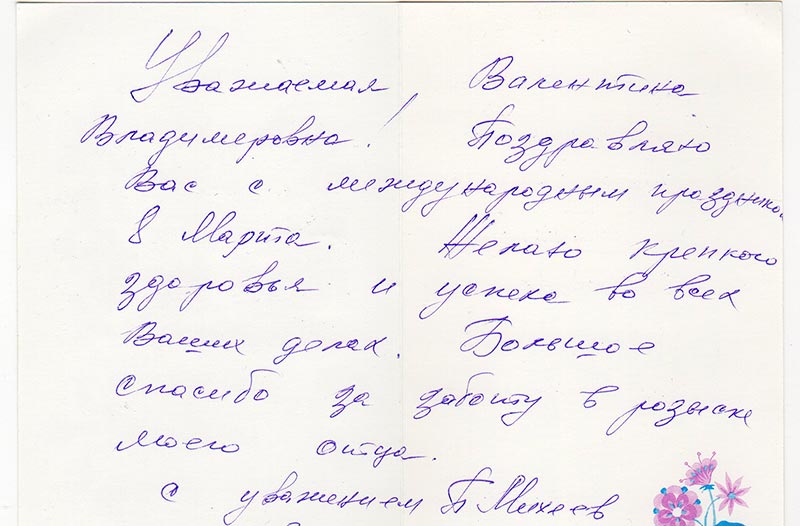 Уважаемая Валентина
Владимеровна! Поздравляю
Вас с международным праздником
8 Марта. Желаю крепкого
здоровья и успеха во всех
Ваших делах. Большое
спасибо за заботу в розыске
моего отца.
С уважением П Михеев